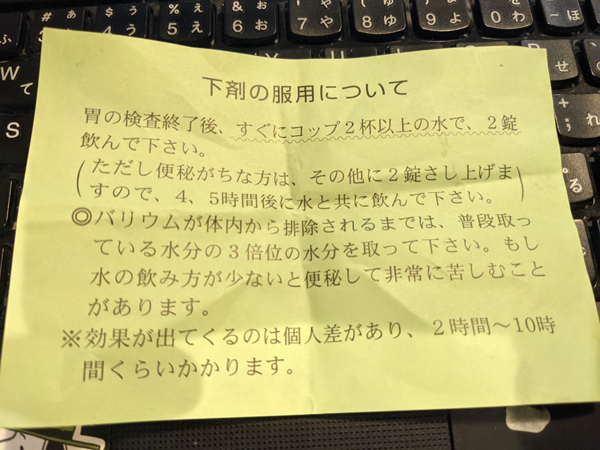 下剤の服用について
胃の検査終了後、すぐにコップ２杯以上の水で、２錠
飲んで下さい。
(ただし便秘がちな方は、その他に２錠さし上げま
すので、４、５時間後に水と共に飲んで下さい。)
◎バリウムが体内から排除されるまでは、普段取っ
ている水分の３倍位の水分を取って下さい。もし
水の飲み方が少ないと便秘して非常に苦しむこと
があります。
※効果が出てくるのは個人差があり、２時間～10時
間くらいかかります。